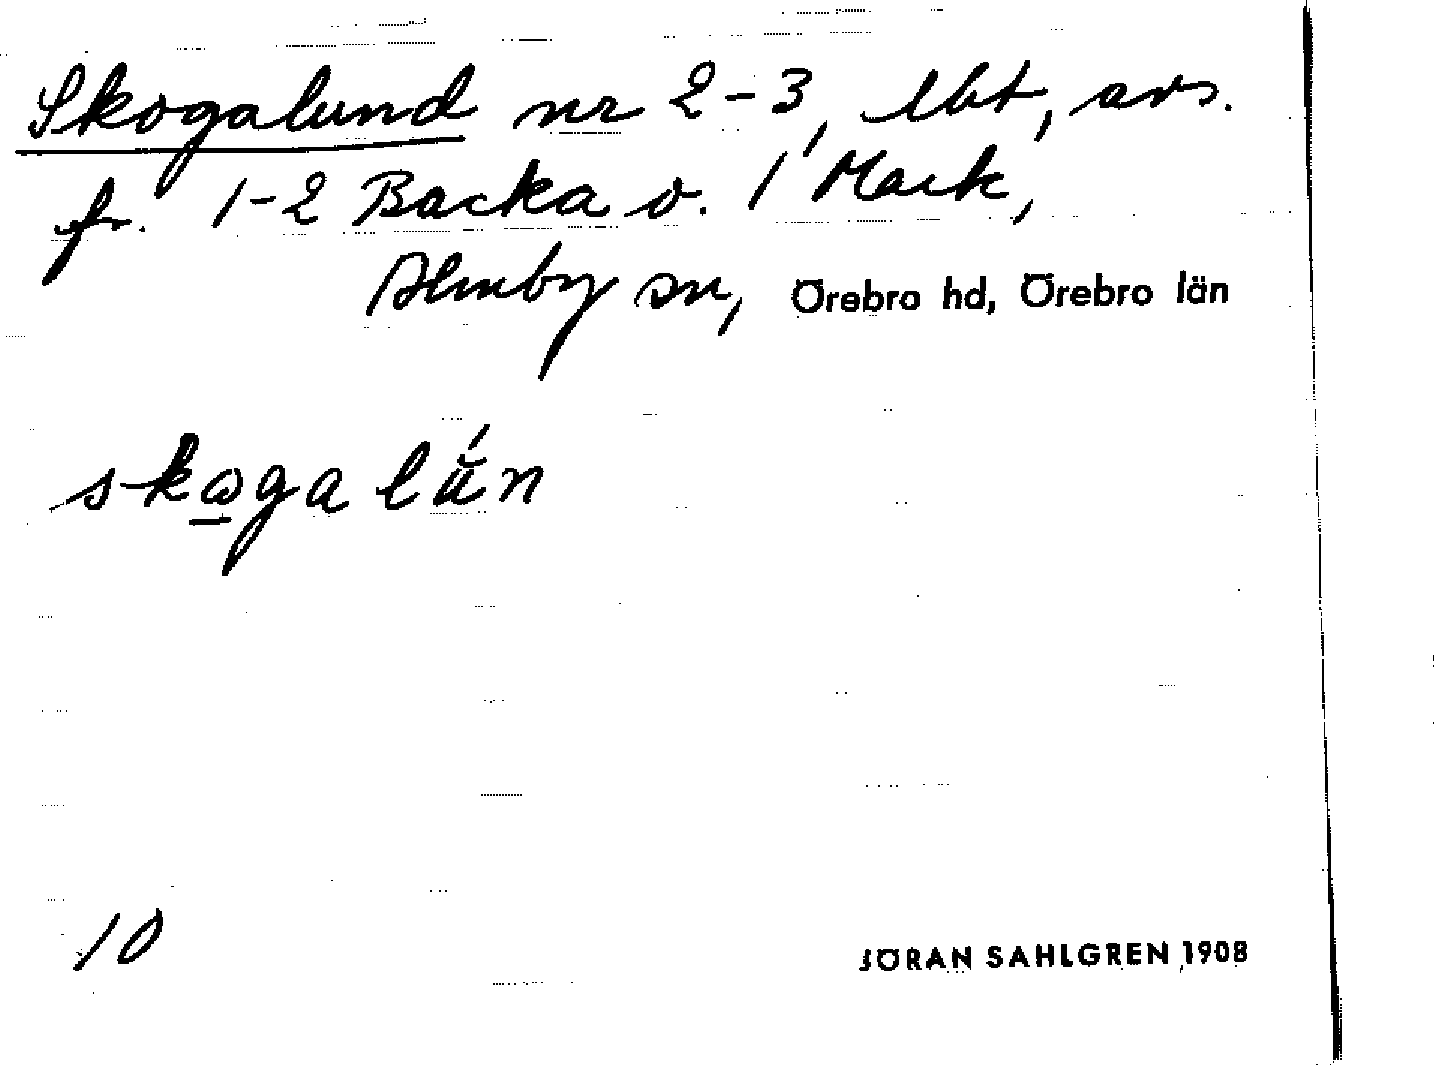 Skogalund nr 2-3, lht, avs.
fr. 1-2 Backa o. 1 Mark,
Almby sn, Örebro hd, Örebro län
skωgalún
10
JÖRAN SAHLGREN 1908